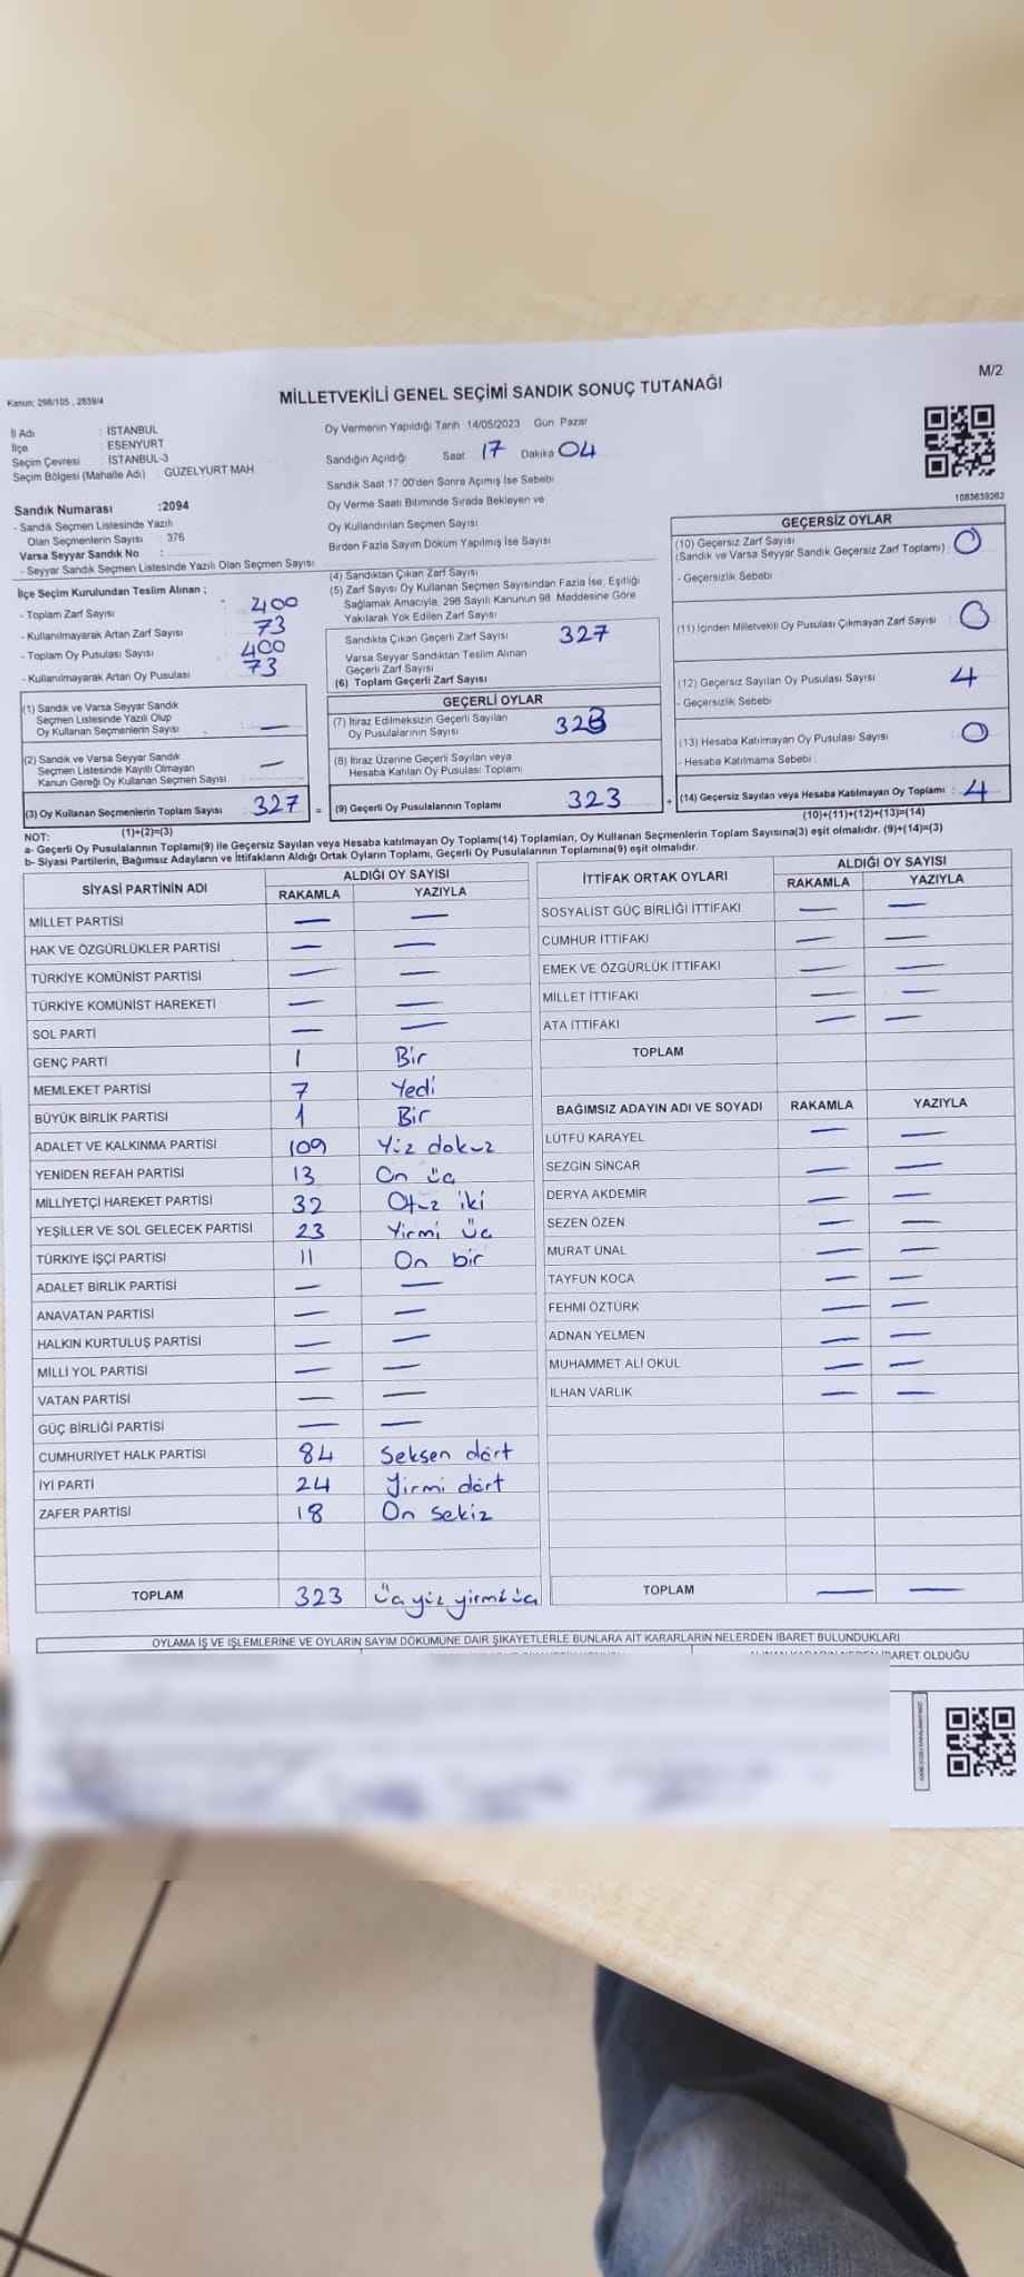 M/2
Kanun; 298/105 , 2839/4
MİLLETVEKİLİ GENEL SEÇİMİ SANDIK SONUÇ TUTANAĞI
İl Adı : İSTANBUL
İlçe : ESENYURT
Seçim Çevresi : İSTANBUL-3
Seçim Bölgesi (Mahalle Adı) : GÜZELYURT MAH
Oy Vermenin Yapıldığı Tarih 14/05/2023 Gün Pazar
Sandığın Açıldığı Saat 17 Dakika 04
Sandık Saat 17.00'den Sonra Açımış İse Sebebi
Oy Verme Saati Bitiminde Sırada Bekleyen ve
Oy Kullandırılan Seçmen Sayısı
Birden Fazla Sayım Döküm Yapılmış İse Sayısı
Sandık Numarası :2094
- Sandık Seçmen Listesinde Yazılı
Olan Seçmenlerin Sayısı 376
Varsa Seyyar Sandık No :
- Seyyar Sandık Seçmen Listesinde Yazılı Olan Seçmen Sayısı:
İlçe Seçim Kurulundan Teslim Alınan ;
- Toplam Zarf Sayısı 400
- Kullanılmayarak Artan Zarf Sayısı 73
- Toplam Oy Pusulası Sayısı 400
- Kullanılmayarak Artan Oy Pusulası 73
(1) Sandık ve Varsa Seyyar Sandık
Seçmen Listesinde Yazılı Olup
Oy Kullanan Seçmenlerin Sayısı —
(2) Sandık ve Varsa Seyyar Sandık
Seçmen Listesinde Kayıtlı Olmayan
Kanun Gereği Oy Kullanan Seçmen Sayısı —
(3) Oy Kullanan Seçmenlerin Toplam Sayısı 327 =
(1)+(2)=(3)
(4) Sandıktan Çıkan Zarf Sayısı
(5) Zarf Sayısı Oy Kullanan Seçmen Sayısından Fazla İse, Eşitliği
Sağlamak Amacıyla, 298 Sayılı Kanunun 98. Maddesine Göre
Yakılarak Yok Edilen Zarf Sayısı
Sandıkta Çıkan Geçerli Zarf Sayısı 327
Varsa Seyyar Sandıktan Teslim Alınan
Geçerli Zarf Sayısı
(6) Toplam Geçerli Zarf Sayısı
GEÇERLİ OYLAR
(7) İtiraz Edilmeksizin Geçerli Sayılan
Oy Pusulalarının Sayısı 323
(8) İtiraz Üzerine Geçerli Sayılan veya
Hesaba Katılan Oy Pusulası Toplamı
(9) Geçerli Oy Pusulalarının Toplamı 323 +
1083639262
GEÇERSİZ OYLAR
(10) Geçersiz Zarf Sayısı
(Sandık ve Varsa Seyyar Sandık Geçersiz Zarf Toplamı) : 0
- Geçersizlik Sebebi
(11) İçinden Milletvekili Oy Pusulası Çıkmayan Zarf Sayısı 0
(12) Geçersiz Sayılan Oy Pusulası Sayısı 4
- Geçersizlik Sebebi
(13) Hesaba Katılmayan Oy Pusulası Sayısı 0
- Hesaba Katılmama Sebebi :
(14) Geçersiz Sayılan veya Hesaba Katılmayan Oy Toplamı : 4
(10)+(11)+(12)+(13)=(14)
NOT:
a- Geçerli Oy Pusulalarının Toplamı(9) ile Geçersiz Sayılan veya Hesaba katılmayan Oy Toplamı(14) Toplamları, Oy Kullanan Seçmenlerin Toplam Sayısına(3) eşit olmalıdır. (9)+(14)=(3)
b- Siyasi Partilerin, Bağımsız Adayların ve İttifakların Aldığı Ortak Oyların Toplamı, Geçerli Oy Pusulalarının Toplamına(9) eşit olmalıdır.
SİYASİ PARTİNİN ADI ALDIĞI OY SAYISI
RAKAMLA YAZIYLA
MİLLET PARTİSİ — —
HAK VE ÖZGÜRLÜKLER PARTİSİ — —
TÜRKİYE KOMÜNİST PARTİSİ — —
TÜRKİYE KOMÜNİST HAREKETİ — —
SOL PARTİ — —
GENÇ PARTİ 1 Bir
MEMLEKET PARTİSİ 7 Yedi
BÜYÜK BİRLİK PARTİSİ 1 Bir
ADALET VE KALKINMA PARTİSİ 109 Yüz dokuz
YENİDEN REFAH PARTİSİ 13 On üç
MİLLİYETÇİ HAREKET PARTİSİ 32 Otuz iki
YEŞİLLER VE SOL GELECEK PARTİSİ 23 Yirmi üç
TÜRKİYE İŞÇİ PARTİSİ 11 On bir
ADALET BİRLİK PARTİSİ — —
ANAVATAN PARTİSİ — —
HALKIN KURTULUŞ PARTİSİ — —
MİLLİ YOL PARTİSİ — —
VATAN PARTİSİ — —
GÜÇ BİRLİĞİ PARTİSİ — —
CUMHURİYET HALK PARTİSİ 84 Seksen dört
İYİ PARTİ 24 Yirmi dört
ZAFER PARTİSİ 18 On sekiz
TOPLAM 323 üçyüz yirmi üç
İTTİFAK ORTAK OYLARI ALDIĞI OY SAYISI
RAKAMLA YAZIYLA
SOSYALİST GÜÇ BİRLİĞİ İTTİFAKI — —
CUMHUR İTTİFAKI — —
EMEK VE ÖZGÜRLÜK İTTİFAKI — —
MİLLET İTTİFAKI — —
ATA İTTİFAKI — —
TOPLAM
BAĞIMSIZ ADAYIN ADI VE SOYADI RAKAMLA YAZIYLA
LÜTFÜ KARAYEL — —
SEZGİN SİNCAR — —
DERYA AKDEMİR — —
SEZEN ÖZEN — —
MURAT ÜNAL — —
TAYFUN KOCA — —
FEHMİ ÖZTÜRK — —
ADNAN YELMEN — —
MUHAMMET ALİ OKUL — —
İLHAN VARLIK — —
TOPLAM — —
OYLAMA İŞ VE İŞLEMLERİNE VE OYLARIN SAYIM DÖKÜMÜNE DAİR ŞİKAYETLERLE BUNLARA AİT KARARLARIN NELERDEN İBARET BULUNDUKLARI
İBARET OLDUĞU